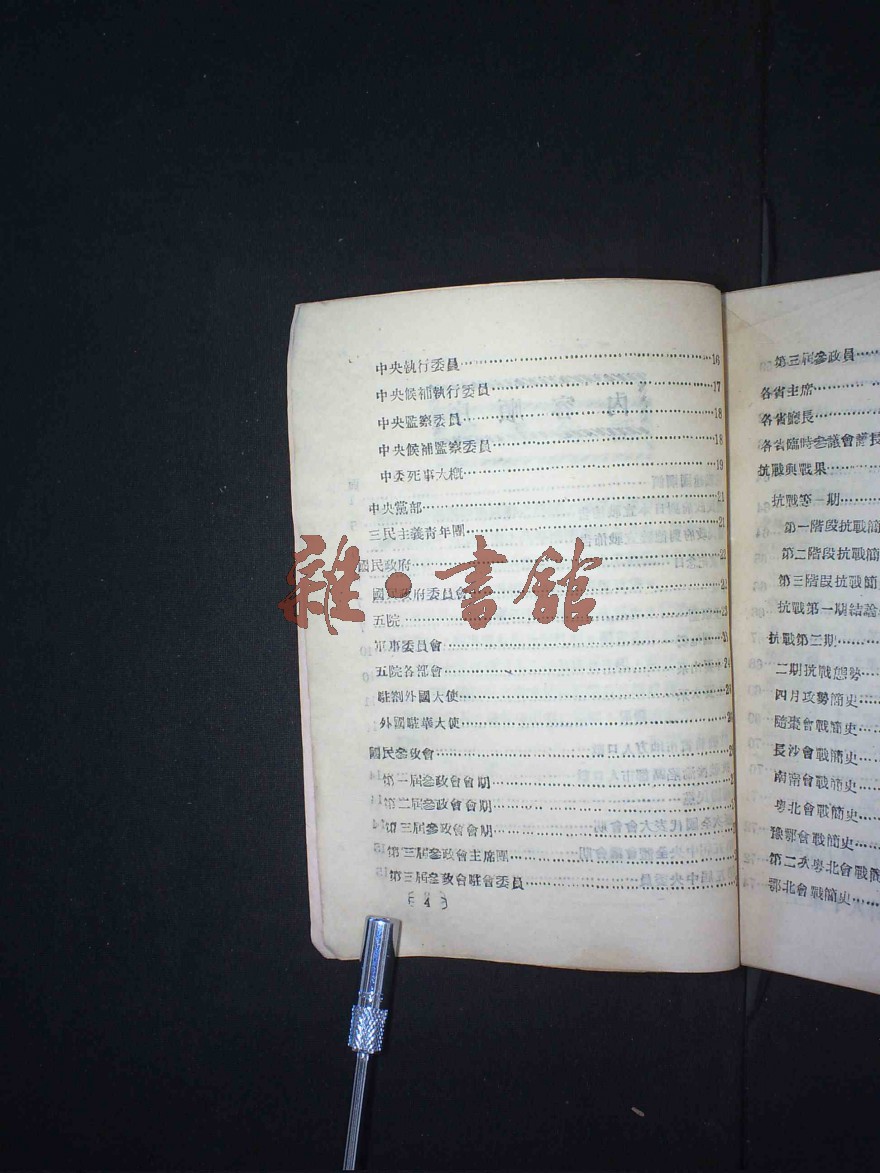 中央執行委員……16
中央候補執行委員……17
中央監察委員……18
中央候補監察委員……18
中委死事大概……19
中央黨部……21
三民主義青年團……21
國民政府……22
國民政府委員會……23
五院……23
軍事委員會
五院各部會……24
駐劄外國大使
外國駐華大使
國民參政會
第一屆參政會會期
第二屆參政會會期
第三屆參政會會期
第三屆參政會主席團
第三屆參政會駐會委員
4
第三屆參政員……
各省主席……
各省廳長……
各省臨時參議會議長
抗戰與戰果……
抗戰第一期……
第一階段抗戰簡
第二階段抗戰簡
第三階段抗戰簡
抗戰第一期結論
抗戰第二期……
二期抗戰態勢……
四月攻勢簡史……
隨棗會戰簡史……
長沙會戰簡史……
南甯會戰簡史……
粵北會戰簡史……
豫鄂會戰簡史……
第二次粵北會戰簡
鄂北會戰簡史……
雜·書館